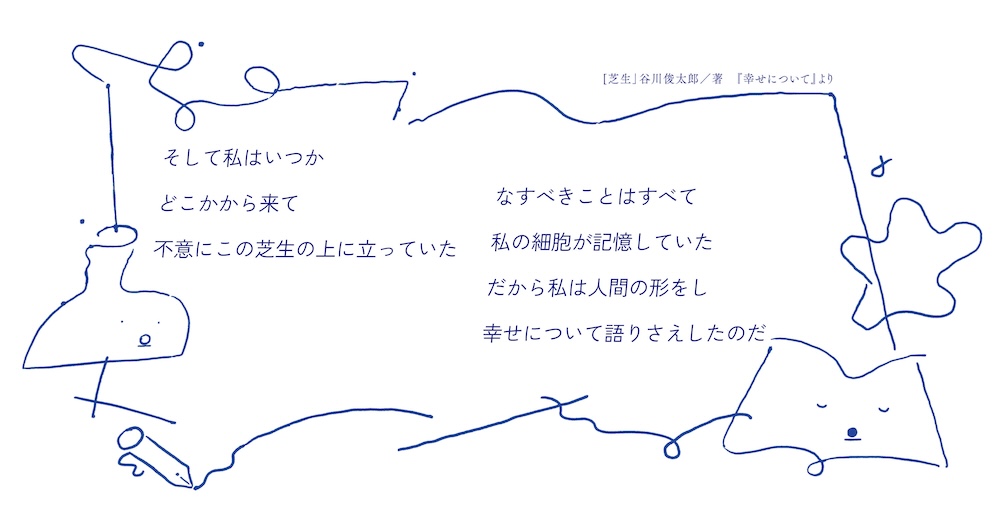 [芝生」谷川俊太郎／著　『幸せについて』より
そして私はいつか
どこかから来て
不意にこの芝生の上に立っていた
なすべきことはすべて
私の細胞が記憶していた
だから私は人間の形をし
幸せについて語りさえしたのだ